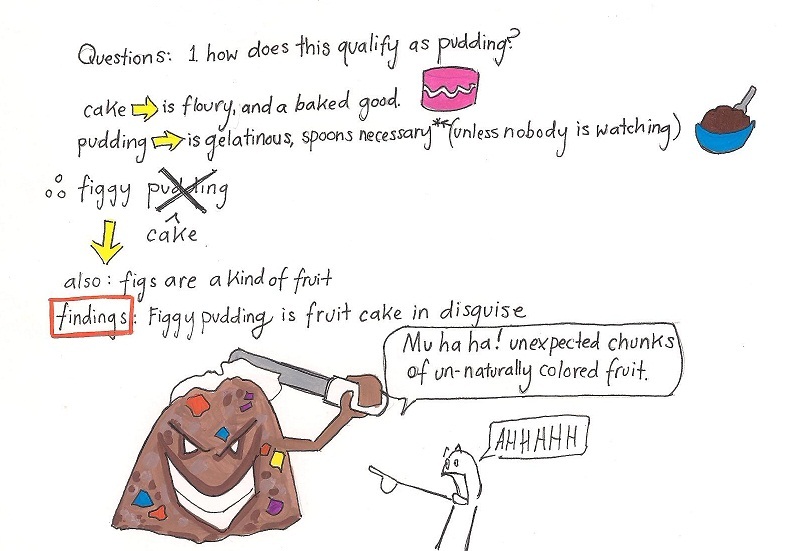 Questions: 1 how does this qualify as pudding?
cake is floury, and a baked good.
pudding is gelatinous, spoons necessary** (unless nobody is watching)
∴ figgy pudding
cake
also: figs are a kind of fruit
findings: Figgy pudding is fruit cake in disguise
Mu ha ha! unexpected chunks
of un-naturally colored fruit.
AHHAHH